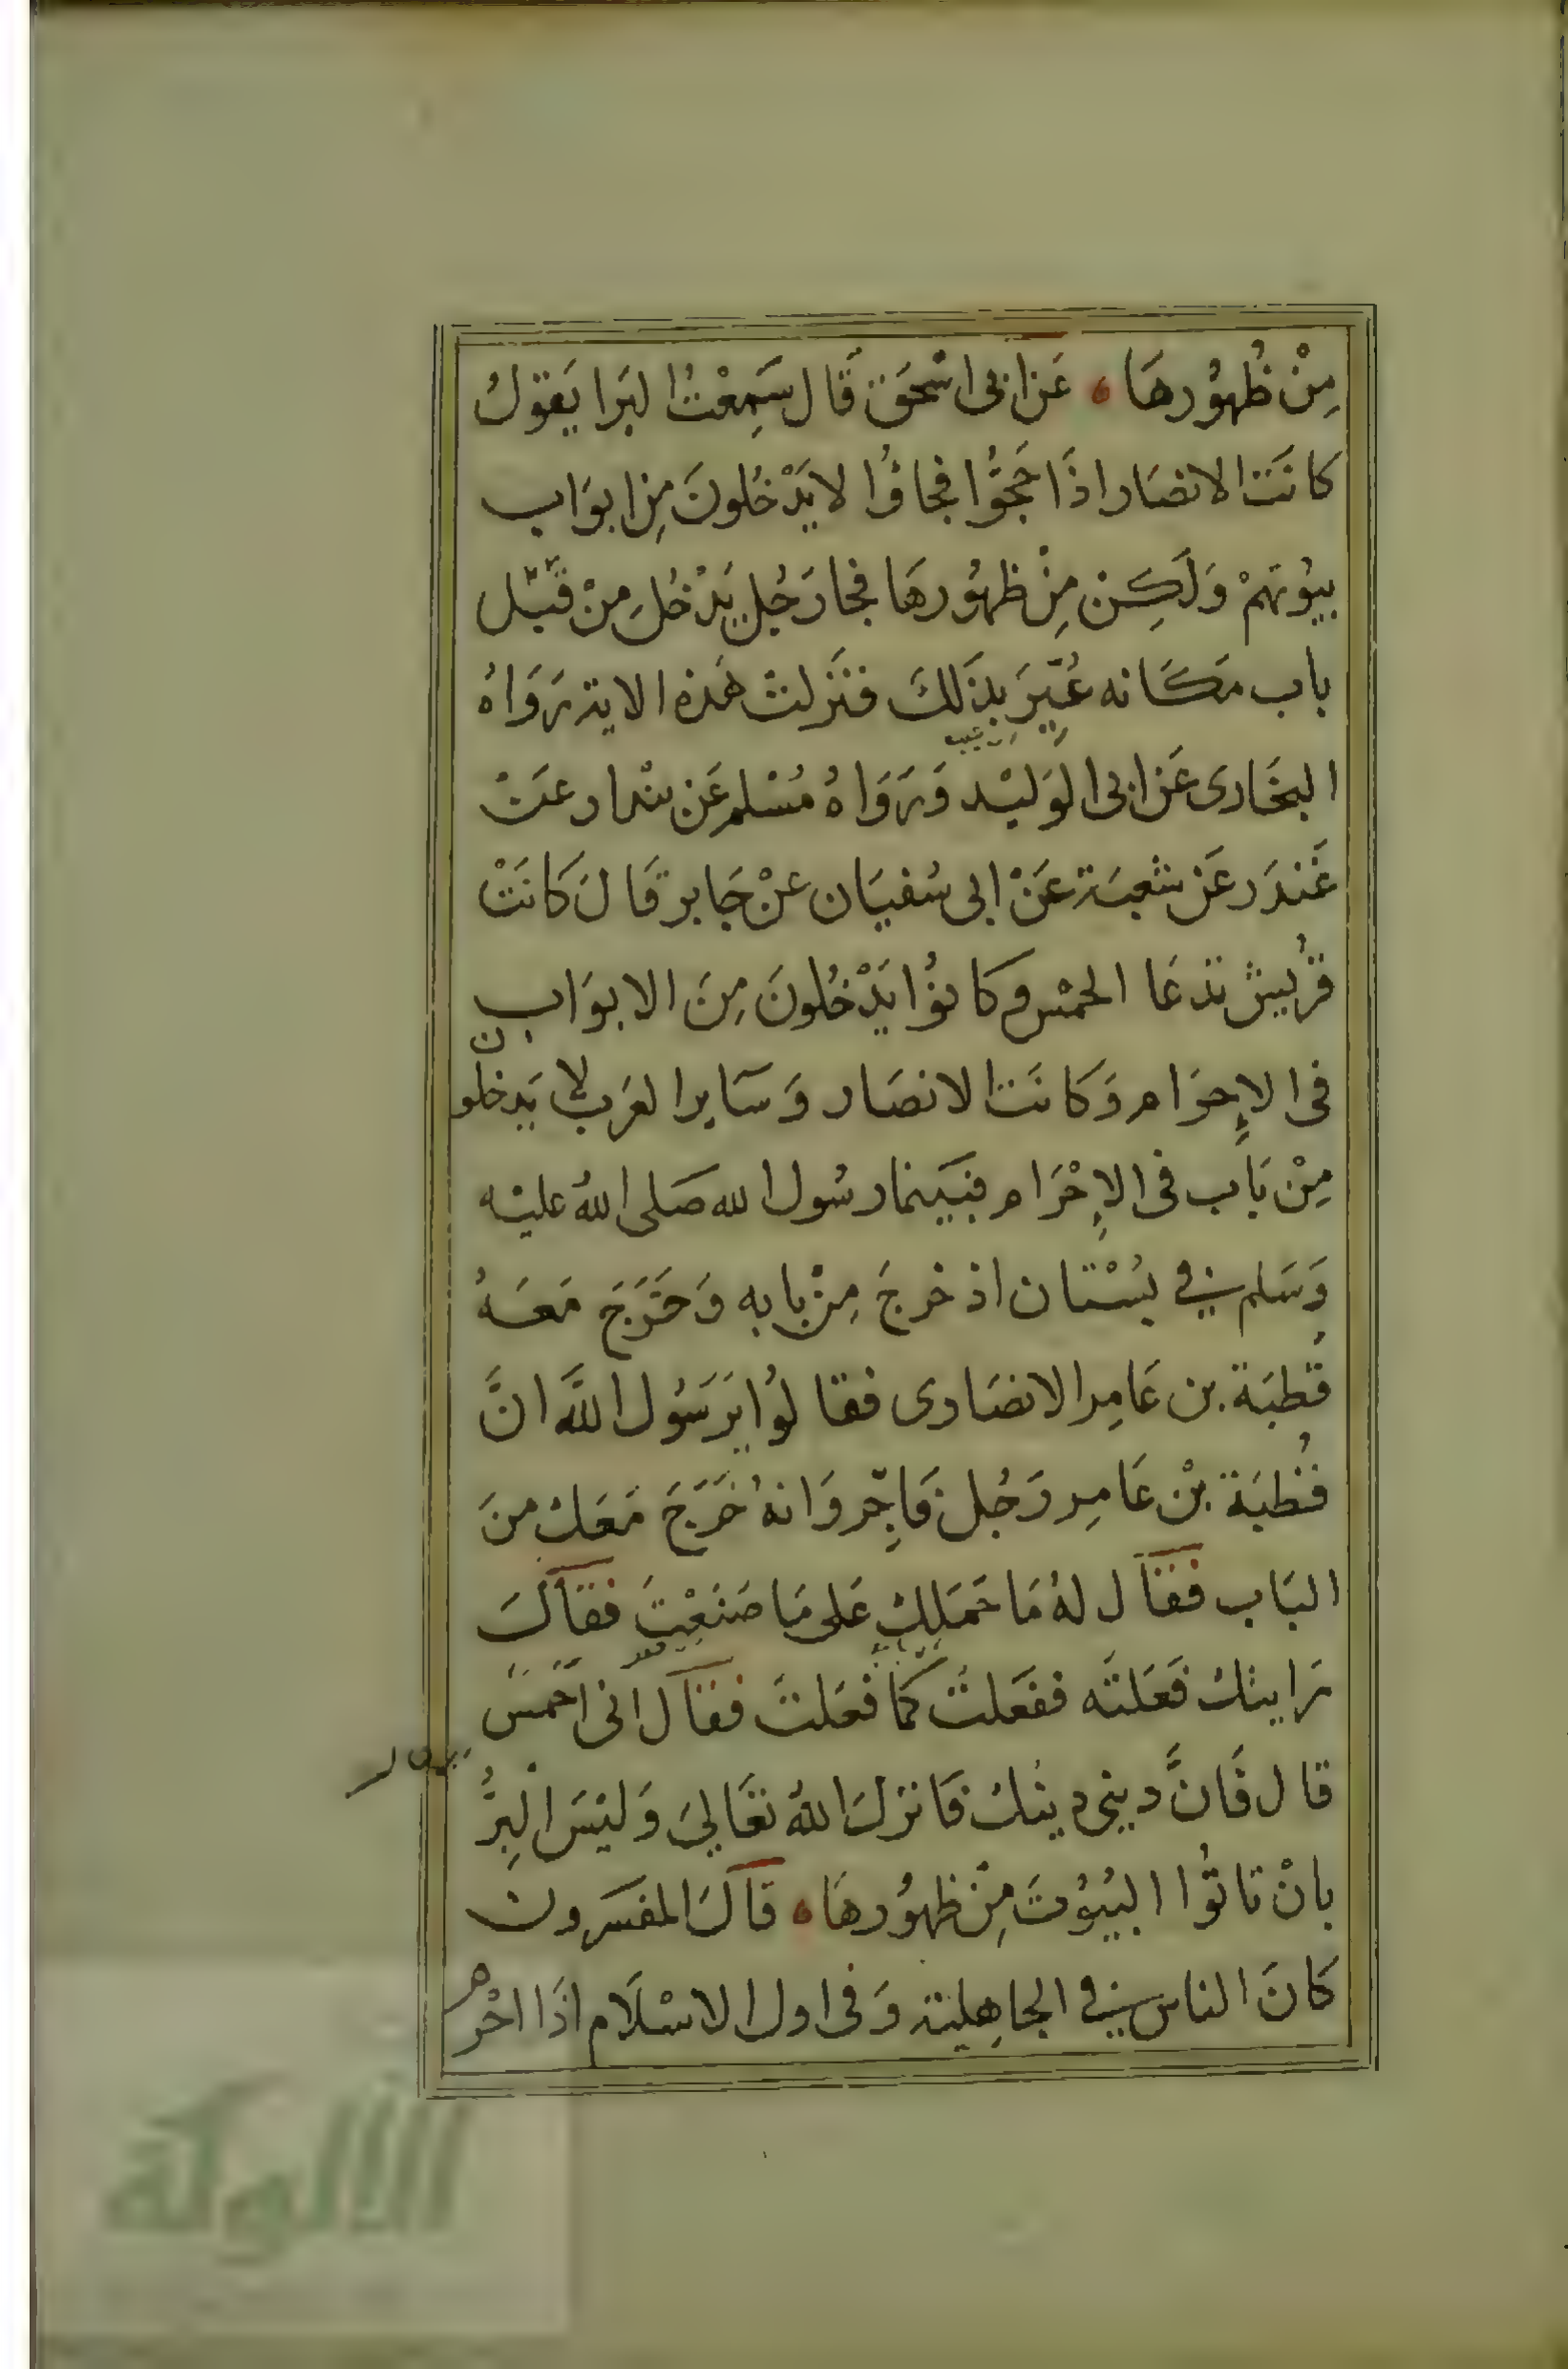 مِنْ ظُهُورهَا ۰ عَن ابى اسْحَق قَال سَمِعْتُ البَرا يَقوُلُ
كانَت الانصَار اذَا حَجُّوا فجاؤُا لا يَدْخُلونَ مِن ابوَاب
بيُوتهَمْ وَلَكِنْ مِنْ ظهُورهَا فجا رَجُل يَدْخُل مِنْ قَبْل
باب مَكَانه عُيِّرَ بذَلكَ فنَزلتْ هَذه الاية رَوَاهُ
البخَارى عَن ابى الوَليْد وَرَوَاهُ مُسْلم عَن بنْدار عَنْ
غَندَر عَن شعبَة عَنْ ابى سُفيَان عنْ جَابر قَالَ كَانَتْ
قُريش تدعَا الحمْس وكانوُا يَدْخُلونَ مِنَ الابوَاب
فى الاِحرَام وَكَانَت الانصَار وَسَاير العَرب لا يَدخلون
مِنْ بَاب فى الاِحْرَام فبَينما رسُول الله صَلى اللهُ عليْه
وَسَلم في بُسْتان اذ خرجَ مِنْ بابه وَخَرَجَ مَعَهُ
قُطبَة بن عَامِر الانصَارى فقالوُا يَرَسُول اللَّه انَّ
قُطبَة بْن عَامِر رَجُل فَاجِر وَانهُ خَرَجَ مَعَكْ منَ
البَاب فقال لهُ مَا حَمَلكْ عَلى مَا صَنَعْتَ فقالَ
رَايتكْ فَعَلتَه ففَعَلتُ كمَا فعَلتَ فقال انى احَمَسَ
قال فَانَّ دينى دينكْ فَانزلَ اللهُ تعَالىَ وَليْسَ الْبِرُّ
بانْ تاتوُا البُيُوتَ مِنْ ظهُورهَا ۰ قالَ المفسَرون
كَانَ الناس في الجاهِلية وَفى اول الاسْلَام اذَا احْرم
الألوكة